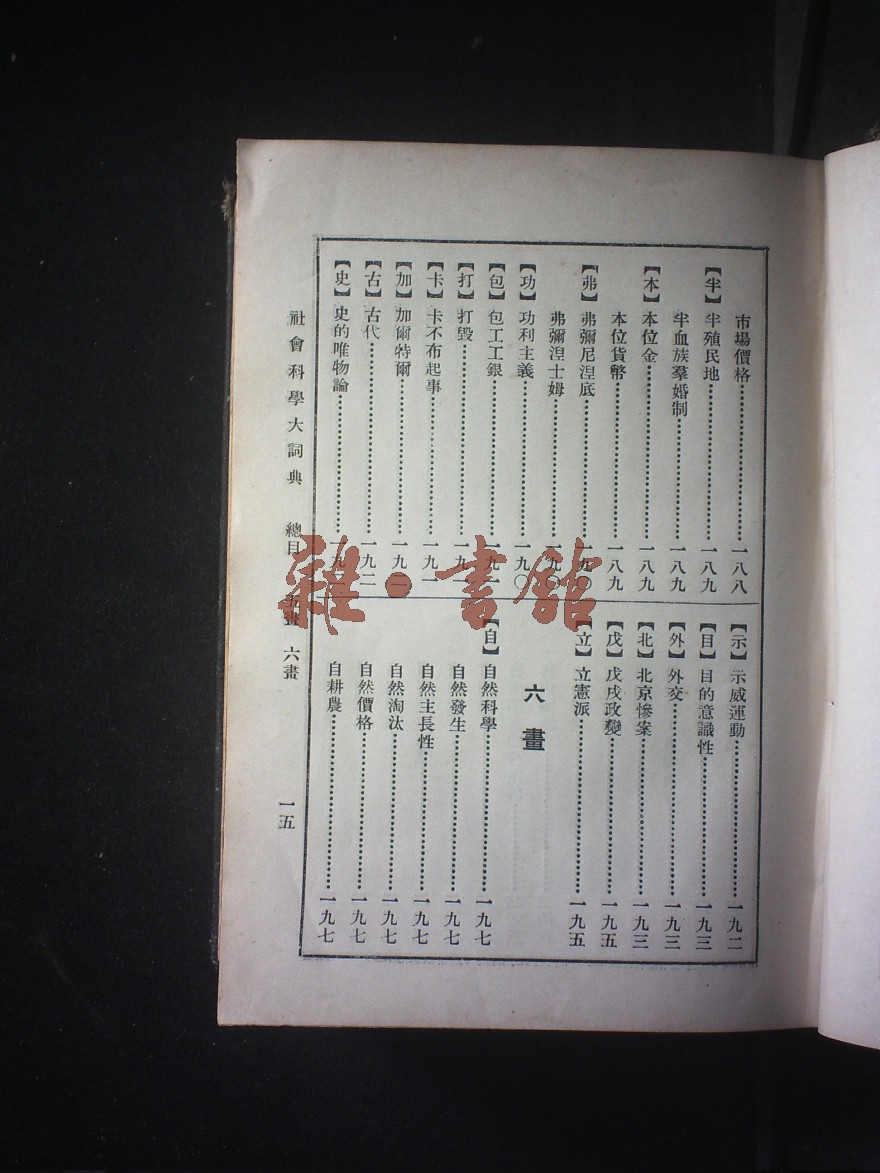 市場價格⋯⋯一八八
【半】半殖民地⋯⋯一八九
半血族羣婚制⋯⋯一八九
【本】本位金⋯⋯一八九
本位貨幣⋯⋯一八九
【弗】弗彌尼涅底⋯⋯一九〇
弗彌涅士姆⋯⋯一九〇
【功】功利主義⋯⋯一九〇
【包】包工工銀⋯⋯一九一
【打】打毀⋯⋯一九一
【卡】卡不布起事⋯⋯一九一
【加】加爾特爾⋯⋯一九一
【古】古代⋯⋯一九二
【史】史的唯物論⋯⋯一九二
【示】示威運動⋯⋯一九二
【目】目的意識性⋯⋯一九三
【外】外交⋯⋯一九三
【北】北京慘案⋯⋯一九三
【戊】戊戌政變⋯⋯一九五
【立】立憲派⋯⋯一九五
六畫
【自】自然科學⋯⋯一九七
自然發生⋯⋯一九七
自然主長性⋯⋯一九七
自然淘汰⋯⋯一九七
自然價格⋯⋯一九七
自耕農⋯⋯一九七
社會科學大詞典 總目 五畫 六畫 一五
雜·書館